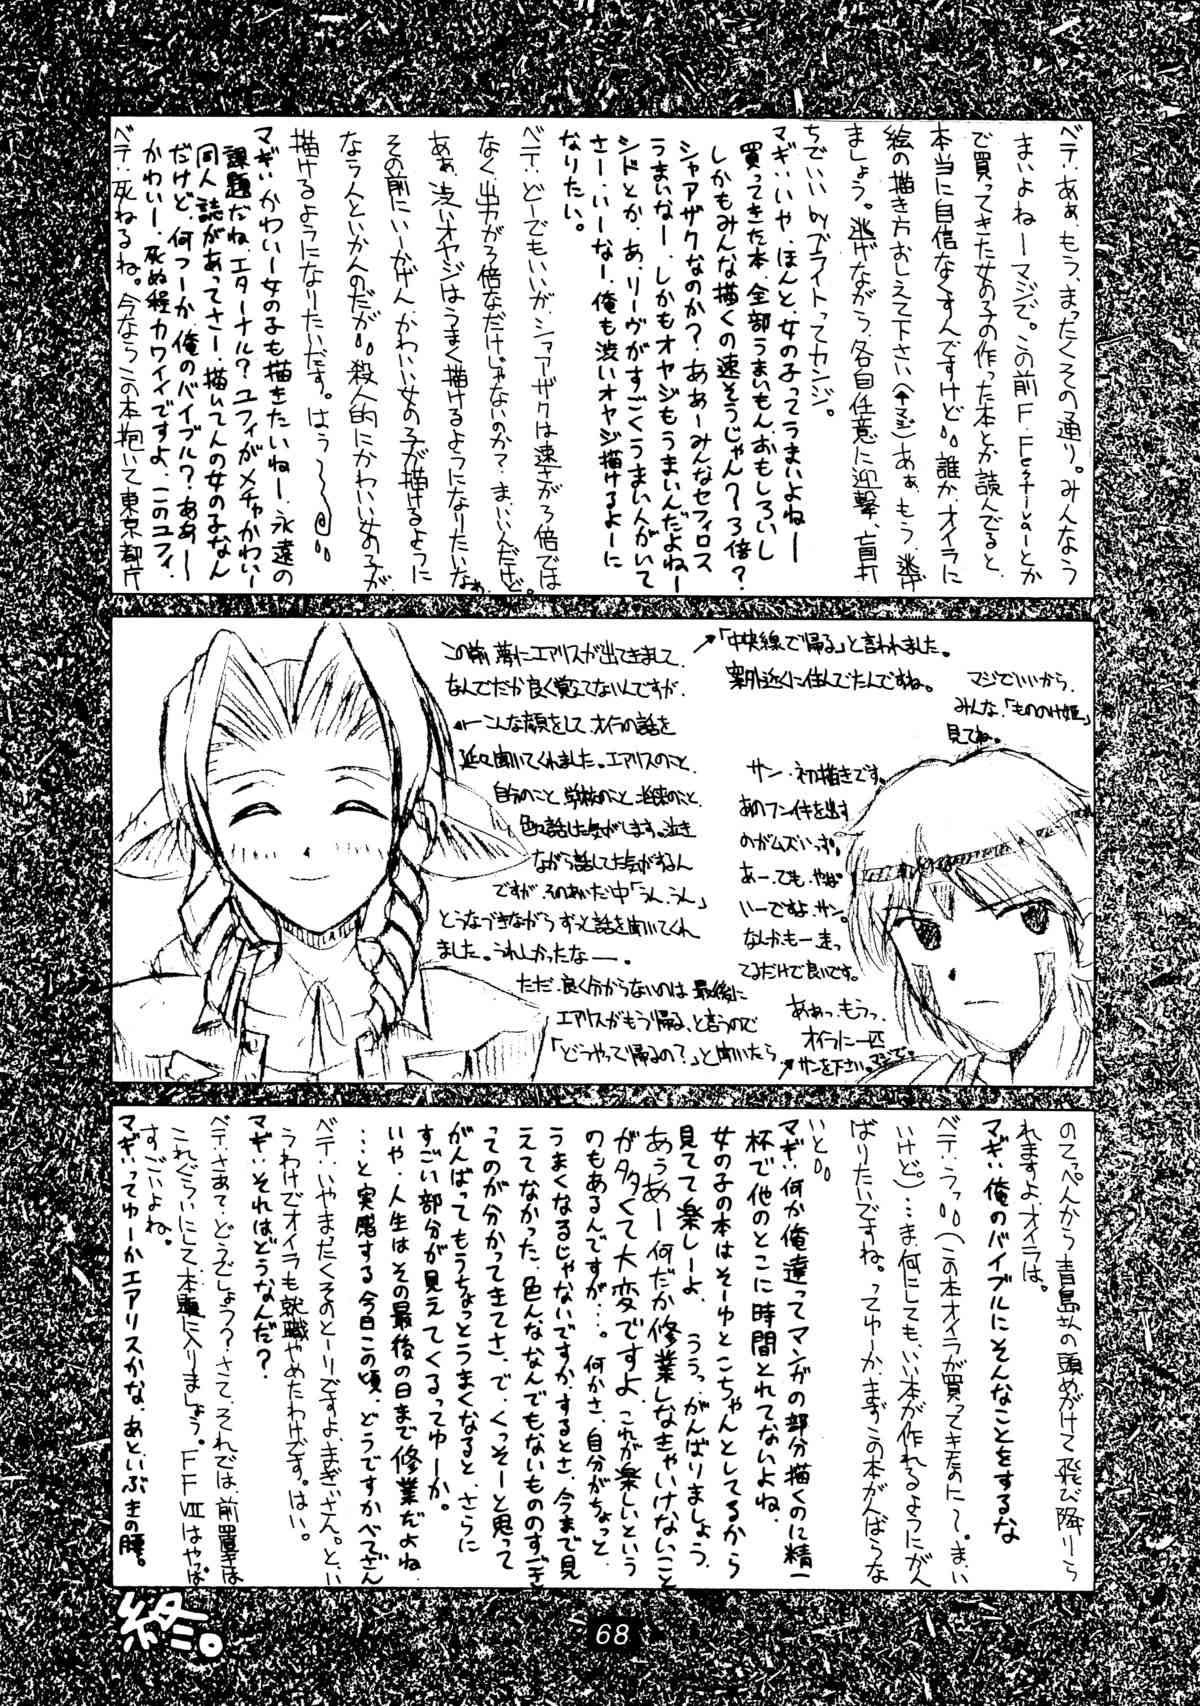 ベテ:あぁ、もう、まったくその通り。みんなう
まいよねーマジで。この前F.Festivalとか
で買ってきた女の子の作った本とか読んでると、
本当に自信なくすんですけど。誰か、オイラに
絵の描き方おしえて下さい(↑マジ)あぁ、もう、逃げ
ましょう。逃げながら、各自任意に迎撃、盲打
ちでいいbyブライトってカンジ。
マギ:いや、ほんと、女の子ってうまいよねー
買ってきた本、全部うまいもん、おもしろいし
しかもみんな描くの速そうじゃん〜3倍?
シャアザクなのか?ああーみんなセフィロス
うまいなー、しかもオヤジもうまいんだよねー
シドとか、あ、リーヴがすごくうまい人がいて
さー、いーなー、俺も渋いオヤジ描けるよーに
なりたい。
ベテ:どーでもいいが、シャアザクは速さが3倍では
なく、出力が3倍なだけじゃないのか?ま、いいんだけど。
あぁ、渋いオヤジはうまく描けるようになりたいなぁ
その前にいーかげん、かわいい女の子が描けるように
ならんといかんのだが。殺人的にかわいい女の子が
描けるようになりたいだす。はぅ〜
マギ:かわいー女の子も描きたいねー、永遠の
課題だね、エターナル?ユフィがメチャかわいー
同人誌があってさー、描いてんの女の子なん
だけど、何つーか、俺のバイブル?ああー
かわいー、死ぬ程カワイイですよ、このユフィ
ベテ:死ねるね。今ならこの本抱いて東京都庁
「中央線で帰る」と言われました。
案外近くに住んでたんですね。
マジでいいから、
みんな、「もののけ姫」
見てね。
この前、夢にエアリスが出てきまして、
なんでだか良く覚えてないんですが、
←こんな顔をして、オイラの話を
延々聞いてくれました。エアリスのこと、
自分のこと、学校のこと、将来のこと、
色々話した気がします。泣き
ながら話してた気がするん
ですが、そのあいだ中「うん、うん」
とうなづきながらずっと話を聞いてくれ
ました。うれしかったなー。
ただ、良く分からないのは、最後に
エアリスがもう帰る、と言うので
「どうやって帰るの?」と聞いたら
サン、初描きです。
あのフンイ気を出す
のがムズいっす。
あー、でも、やっぱ
いーですよ、サン。
なんかもー、走っ
てるだけで良いです。
ああっ、もうっ、
オイラに一匹
サンを下さい。マジで。
のてっぺんから青島さんの頭めがけて飛び降りら
れますよ、オイラは。
マギ:俺のバイブルにそんなことをするな
ベテ:うっ。(この本オイラが買ってきたのにて。ま、いい
いけど。)…ま、何にしても、いい本が作れるようにがん
ばりたいですね。ってゆーか、まず、この本がんばらな
いと。
マギ:何か俺達ってマンガの部分描くのに精一
杯で他のとこに時間とれてないよね、
女の子の本はそーゆとこちゃんとしてるから
見てて楽しーよ、ううっ、がんばりましょう、
あぅあー何だか修業しなきゃいけないこと
がタタくて大変ですよ、これが楽しいという
のもあるんですが…。何かさ、自分がちょっと、
うまくなるじゃないですか、するとさ、今まで見
えてなかった、色んな、なんでもないもののすごさ
ってのが分かってきてさ、で、くっそーと思って
がんばってもうちょっとうまくなると、さらに
すごい部分が見えてくるってゆーか。
いや、人生はその最後の日まで修業だよね
…と実感する今日この頃、どうですかベてさん
ベテ:いやまったくそのとーりですよ、まぎぃさん。とい
うわけでオイラも就職やめたわけです。はい。
マギ:それはどうなんだ?
ベテ:さあて、どうでしょう?さて、それでは、前置きは
これぐらいにして本題に入りましょう。FFⅦはやっぱ
すごいよね。
マギ:ってゆーかエアリスかな、あといぶきの腰。
終。
68